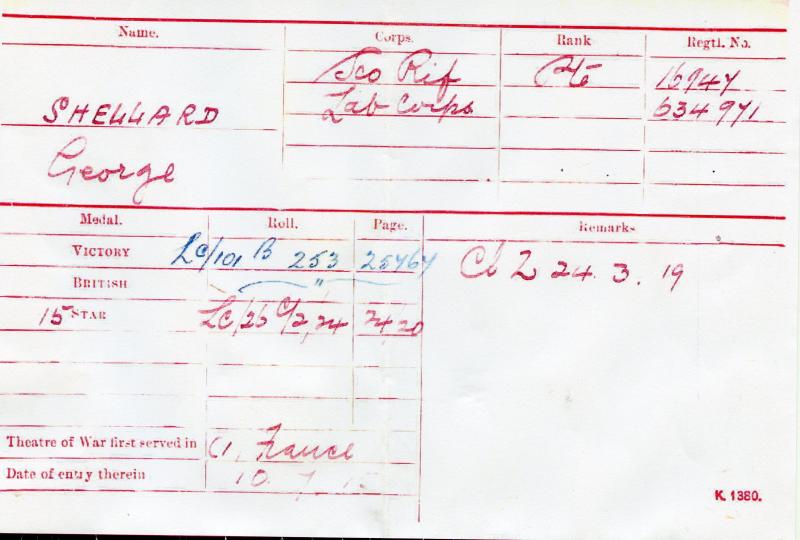 Name. Corps. Rank Regtl. No.
Sco Rif Pte 15947
SHELLARD Lab Corps 534971
George
Medal. Roll. Page. Remarks
VICTORY LC/101 B 253 25464 Cl Z 24.3.19
BRITISH "
15 STAR LC/25
Theatre of War first served in (1, France
Date of entry therein 10.7.15
K. 1380.